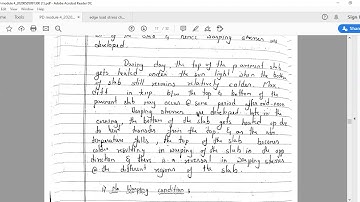 PD module 4_20200505001306 (1).pdf - Adobe Acrobat Reader DC
Home Tools
of the slab & hence warping stresses are
developed.
During day, the top of the pavement slab
gets heated under the sun light when the bottom
of slab still remains relatively colder. Max.
diff in temp b/w the top & bottom of the
pavement slab may occur @ some period after mid-noon
Warping stresses are developed late in the
evening, the bottom of the slab gets heated up due
to heat transfer from the top & as the
temperature falls, the top of the slab becomes
colder resulting in warping of the slab in the opp
direction & there is a reversal in warping stresses
@ the different regions of the slab.
the Warping condition :